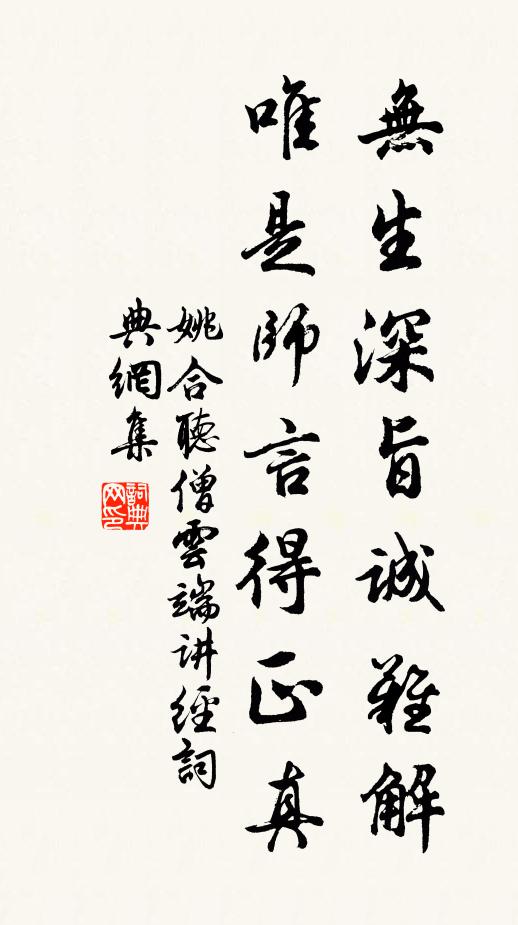 無生深旨誠難解
唯是師言得正真
姚合聽僧雲端讲經詞
典網集
詞典网印